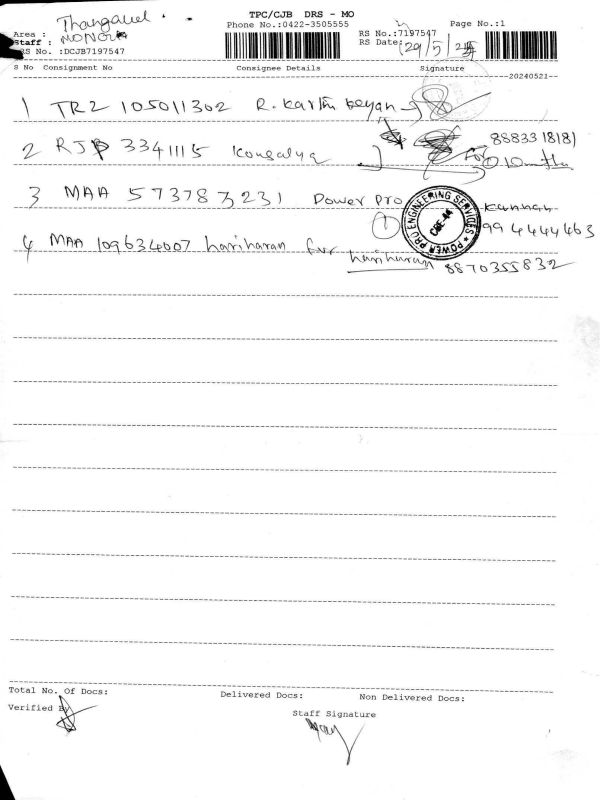 TPC/CJB DRS - MO
Thangavel
Phone No.:0422-3505555
Page No.:1
Area :
RS No.:7197547
Staff :
RS Date: 29/5/
RS No. :DCJB7197547
S No Consignment No Consignee Details Signature
--20240521--
1 TR2 105011302 R. Karthi keyan
8883318181
2 RJP 3341115 Kousalya
3 MAA 573783231 Power Pro
Kannan
994444463
POWER PRO ENGINEERING SERVICES
CBE-44
4 MAA 109634007 hariharan for hariharan 8870355832
Total No. Of Docs:
Delivered Docs:
Non Delivered Docs:
Verified By
Staff Signature